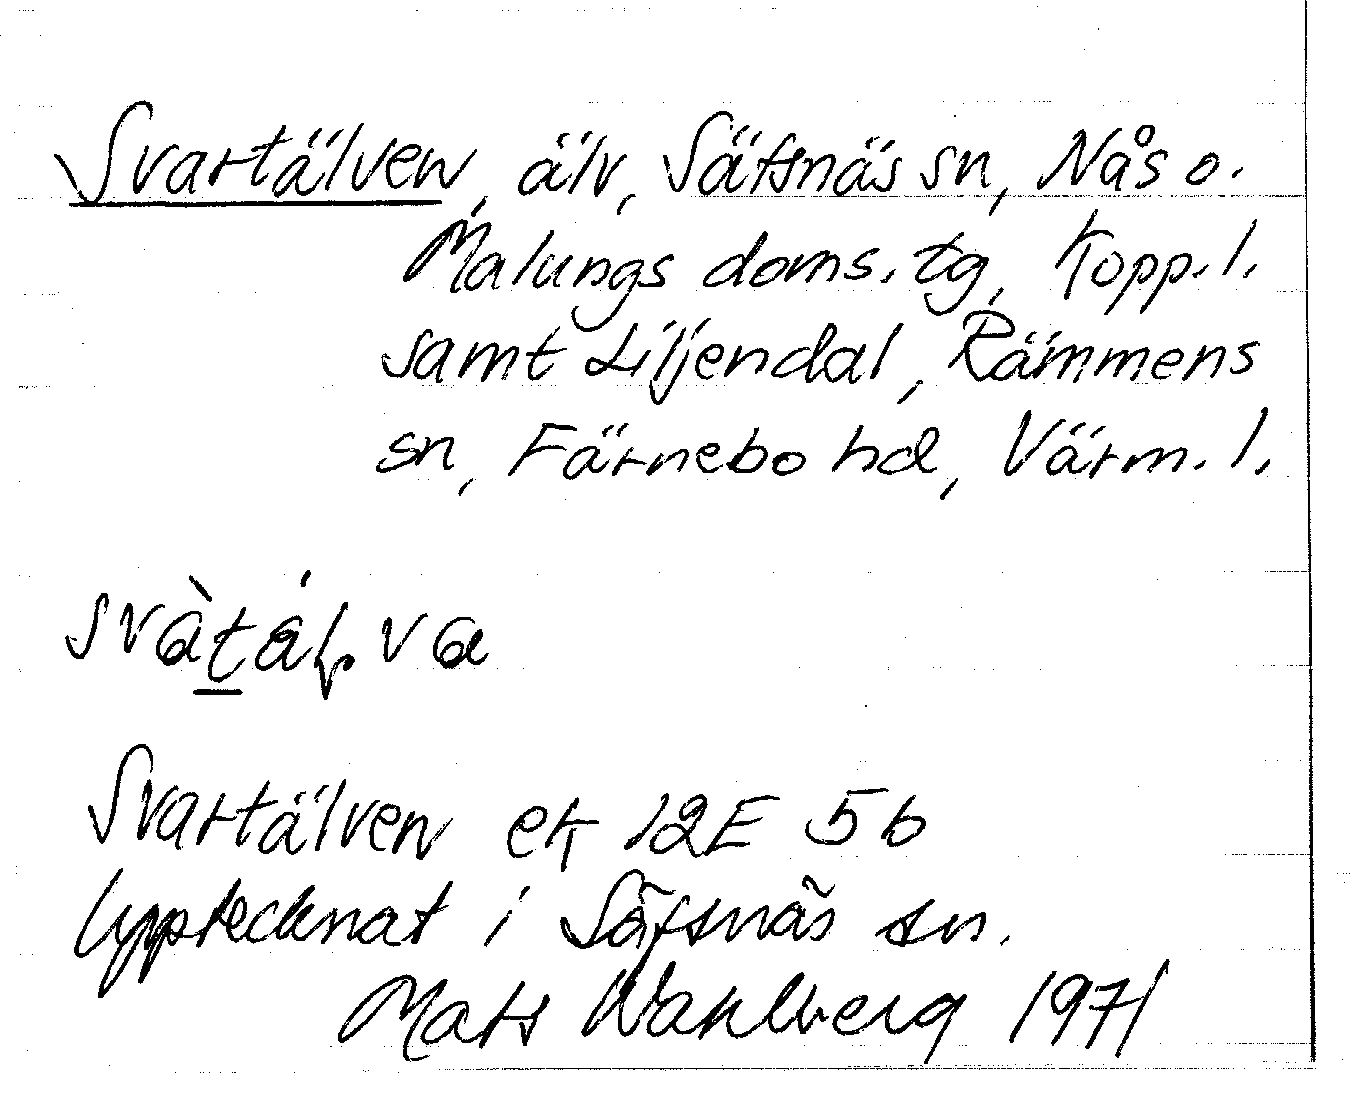 Svartälven, älv, Säfsnäs sn, Nås o.
Malungs doms.tg, Kopp.l.
samt Liljendal, Rämmens
sn, Färnebo hd, Värm.l.
Svartälven ek 12E 5b
Upptecknat i Säfsnäs sn.
Mats Wahlberg 1971